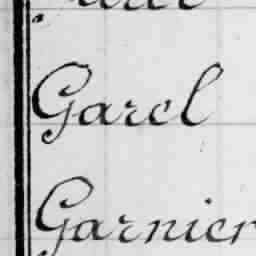 Garel
Garnier